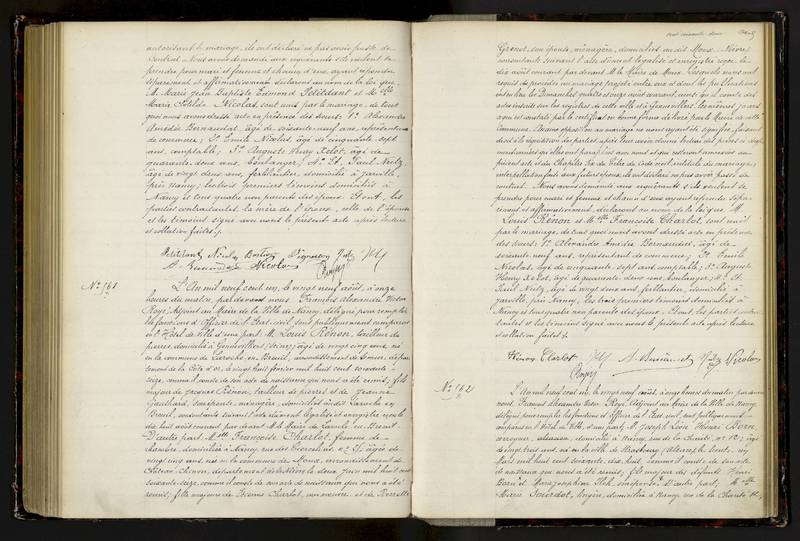 autorisant le mariage, ils ont déclaré ne pas avoir passé de
contrat. Nous avons demandé aux requérants s'ils veulent se
prendre pour mari et femme et chacun d'eux ayant répondu
séparément et affirmativement déclarons au nom de la loi que
M. Marie Jean Baptiste Edmond Petitdant et Melle
Marie Nicolas, sont unis par le mariage, de tout
quoi nous avons dressé acte en présence des sieurs: 1° Alexandre
Amédée Bernardat, âgé de soixante neuf ans, représentant
de commerce; 2° Emile Nicolas, âgé de cinquante sept
ans, comptable; 3° Auguste Henry Xelot, âgé de
quarante deux ans, boulanger; 4° et Paul Neitz
âgé de vingt deux ans, ferblantier, domicilié à Jarville,
près Nancy; les trois premiers témoins domiciliés à
Nancy et tous quatre non parents des époux. Et ont, les
parties contractantes, la mère de l'époux, celle de l'épouse
et les témoins signé avec nous le présent acte après lecture
et collation faites.
Petitdant
Nicolas
N° 161
L'An mil neuf cent un, le vingt neuf août, à onze
heures du matin, par devant nous François Alexandre Victor
Royé, Adjoint au Maire de la Ville de Nancy, délégué pour remplir
les fonctions d'officier de l'Etat civil, sont publiquement comparus
en l'Hôtel de Ville d'une part M. Louis Rénon, tailleur de
pierres, domicilié à Gennevilliers (Seine), âgé de vingt cinq ans, né
en la commune de Laroche en Breuil, arrondissement de Semur, dépar-
tement de la Côte d'or, le vingt huit février mil huit cent soixante
seize, comme il conste de son acte de naissance qui nous a été remis; fils
majeur de Jacques Rénon, tailleur de pierres et de Jeanne
son épouse ménagère, domiciliés au dit Laroche en
Breuil, consentants suivant l'acte dûment légalisé et enregistré reçu le
dix huit août courant par devant M. le Maire de Laroche en Breuil.
D'autre part, Melle Françoise Charlot, femme de
chambre, domiciliée à Nancy, rue des n° 5, âgée de
vingt cinq ans, née en la commune de Moux, arrondissement de
Château Chinon, département de la Nièvre, le deux Juin mil huit cent
soixante seize, comme il conste de son acte de naissance qui nous a été
remis; fille majeure de Charlot, et de Pierrette
cent soixante deux
Grenot, son épouse, ménagère, domiciliés au dit Moux (Nièvre)
consentants suivant l'acte dûment légalisé et enregistré reçu le
dix août courant par devant M. le Maire de Moux. Lesquels nous ont
requis de procéder au mariage projeté entre eux et dont les publications
ont eu lieu les Dimanches quatre et onze août courant, ainsi qu'il conste des
actes inscrits sur les registres de cette ville et à Gennevilliers, les mêmes jours
ainsi qu'est constaté par le certificat en bonne forme délivré par le Maire de cette
Commune. Aucune opposition au mariage ne nous ayant été signifiée, faisant
droit à la réquisition des parties, après leur avoir donné lecture des pièces ci-dessus
mentionnées qu'elles ont paraphées avec nous et qui resteront annexées au
présent acte et du Chapitre six du Titre du Code civil intitulé du mariage;
interpellation faite aux futurs époux, ils ont déclaré ne pas avoir passé de
contrat. Nous avons demandé aux requérants s'ils veulent se
prendre pour mari et femme et chacun d'eux ayant répondu sépa-
rément et affirmativement, déclarons au nom de la loi que M.
Louis Rénon et Melle Françoise Charlot, sont unis
par le mariage, de tout quoi nous avons dressé acte en présence
des sieurs: 1° Alexandre Amédée Bernardat, âgé de
soixante neuf ans, représentant de commerce; 2° Emile
Nicolas, âgé de cinquante sept ans, comptable; 3° Auguste
Henry Xelot, âgé de quarante deux ans, boulanger; 4° et
Paul Neitz, âgé de vingt deux ans, ferblantier, domicilié à
Jarville, près Nancy, les trois premiers témoins domiciliés à
Nancy et tous quatre non parents des époux. Et ont, les parties contrac-
tantes et les témoins signé avec nous le présent acte après lecture
et collation faites.
Rénon Charlot Nicolas
N° 162
L'An mil neuf cent un, le vingt neuf août, à onze heures du matin, par devant
nous, François Alexandre Victor Royé, Adjoint au Maire de la Ville de Nancy
délégué pour remplir les fonctions d'officier de l'Etat civil, sont publiquement
comparus en l'Hôtel de Ville, d'une part, M. Joseph Léon Henri Born
alsacien, domicilié à Nancy, rue de la Charité, n° 12; âgé
de vingt trois ans, né en la ville de Strasbourg (Allemagne), le cinq
Mars mil huit cent soixante dix huit, comme il conste de son acte
de naissance qui nous a été remis; fils majeur des défunts Henri
Born et Marie Joséphine son épouse. D'autre part, Melle
Marie domiciliée à Nancy, rue de la Charité 12,